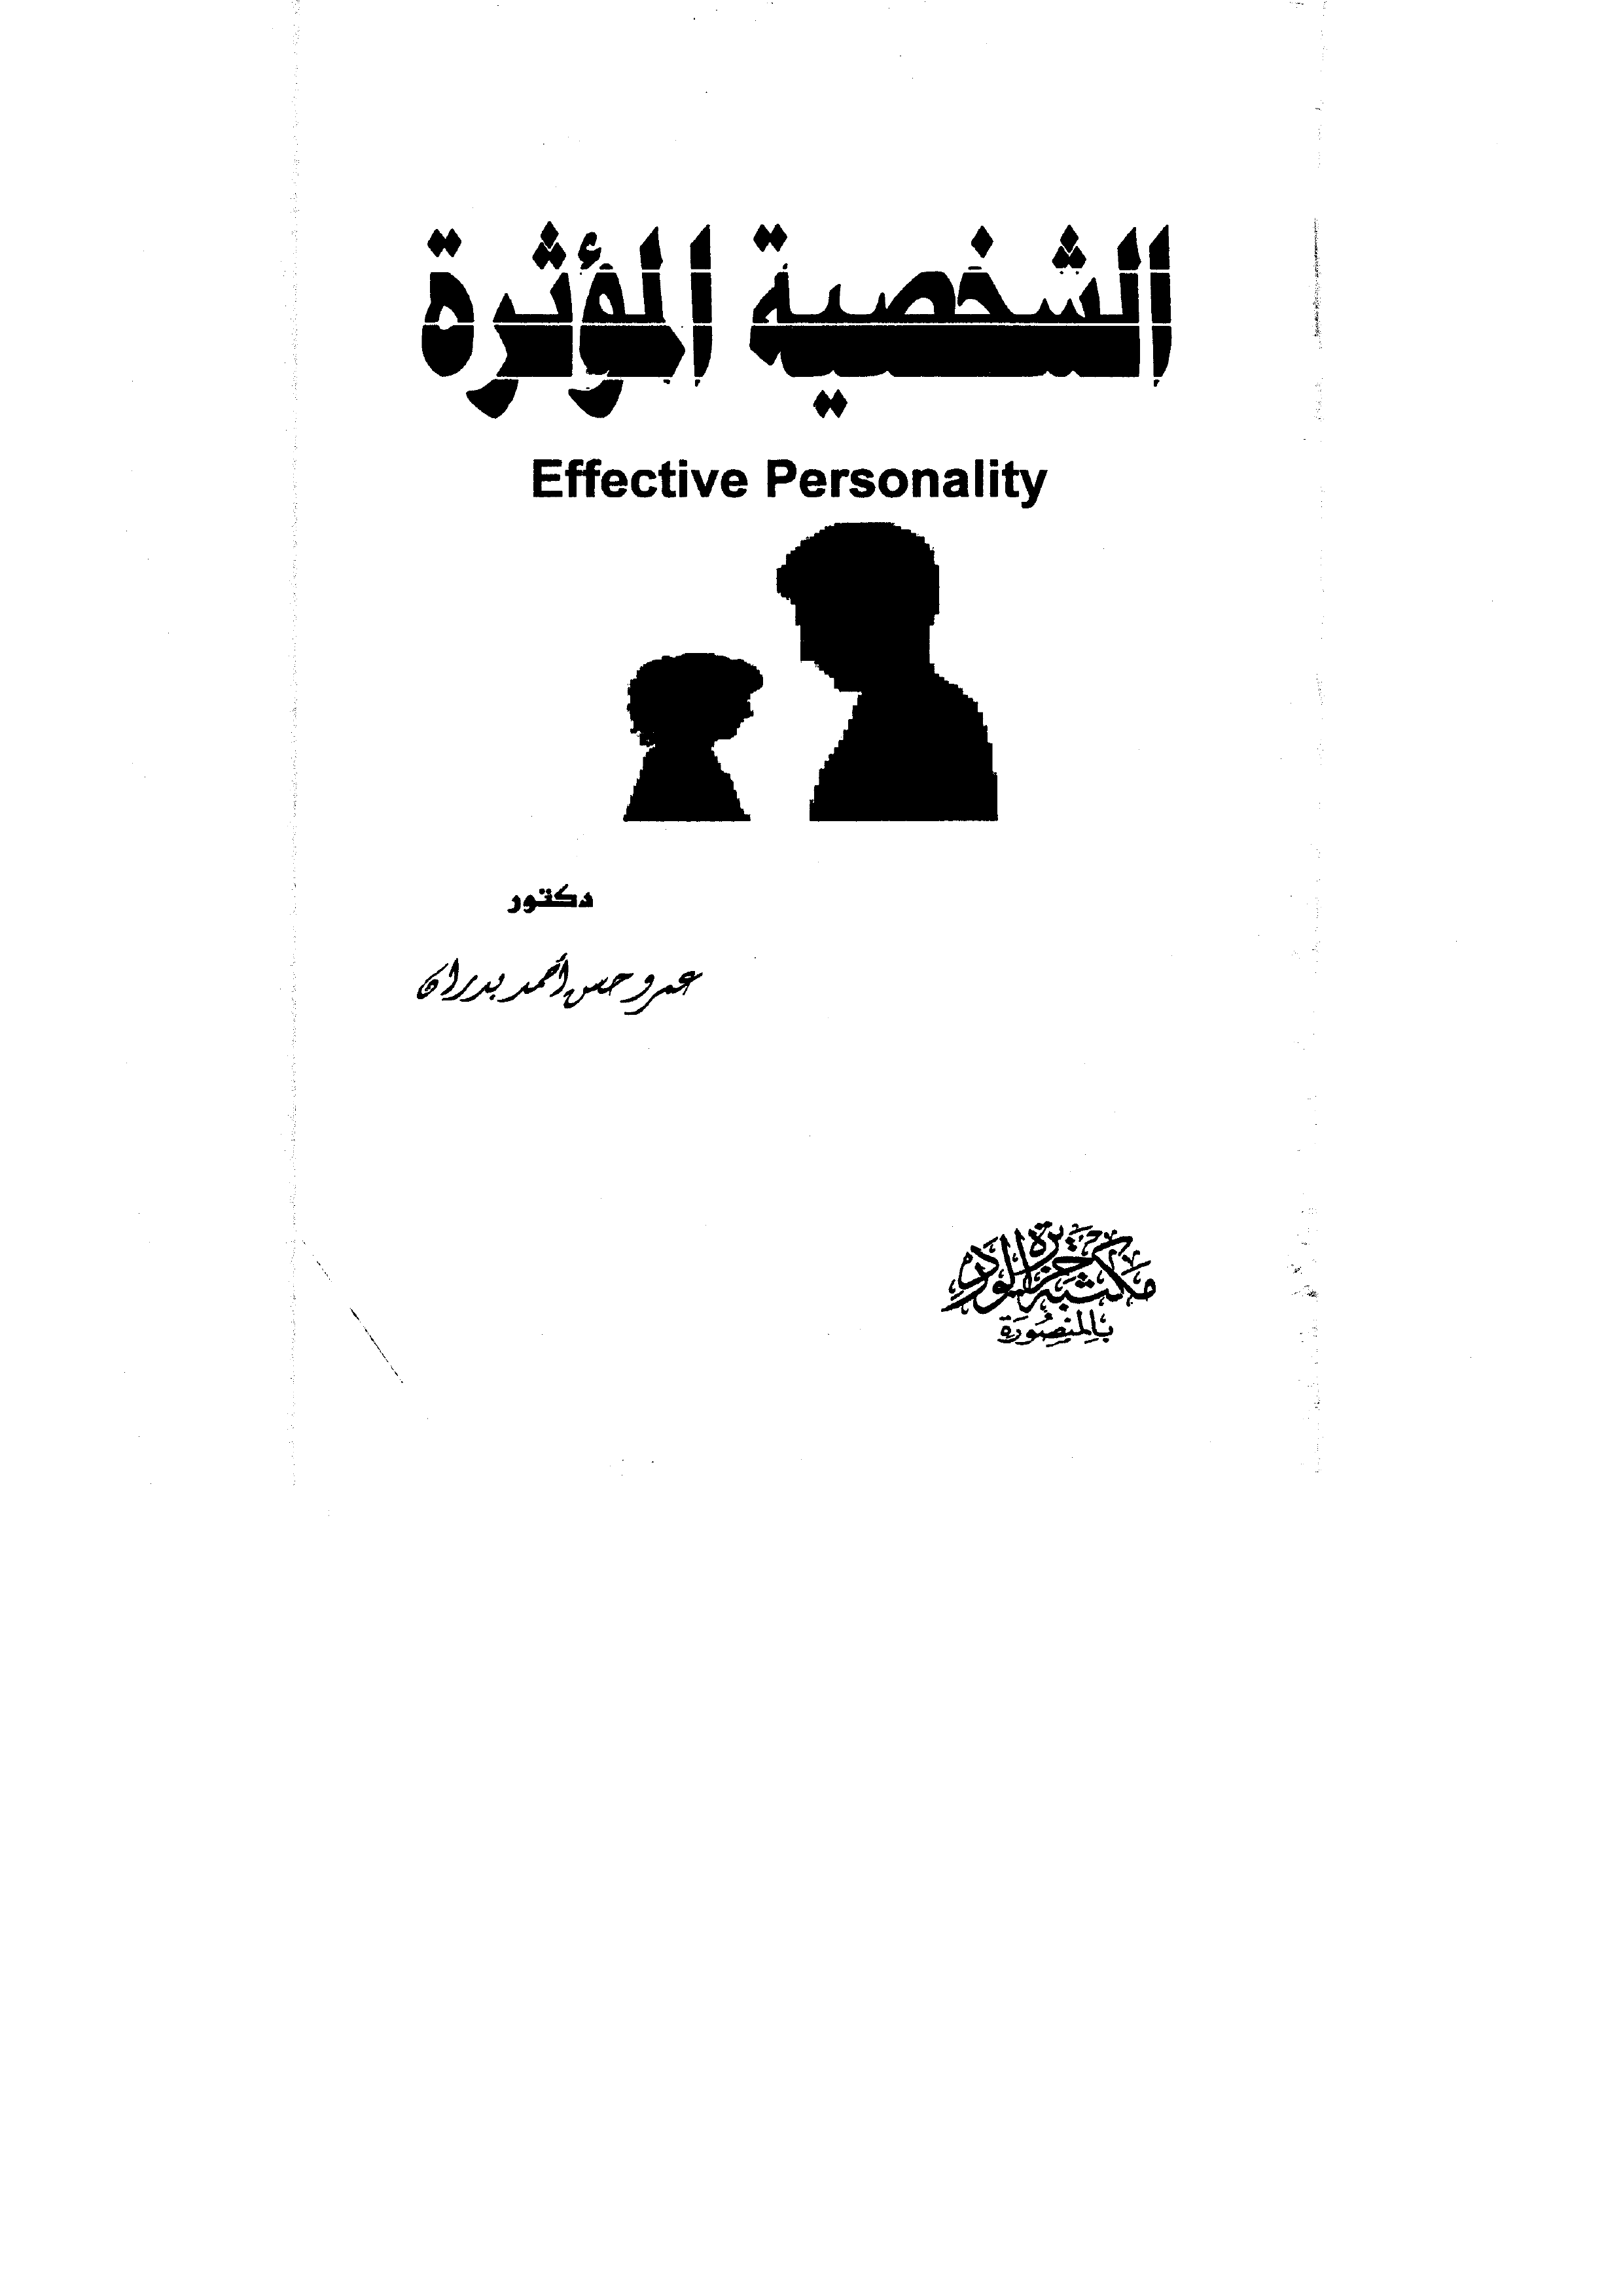 الشخصية المؤثرة
Effective Personality
دكتور
عمرو حسن أحمد بدران
مكتبة جزيرة الورد
بالمنصورة